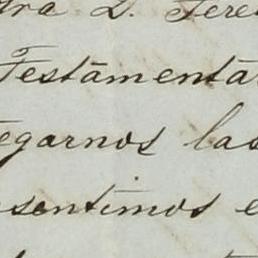 tra D. Tere
Testamenta
egarnos las
sentimos e